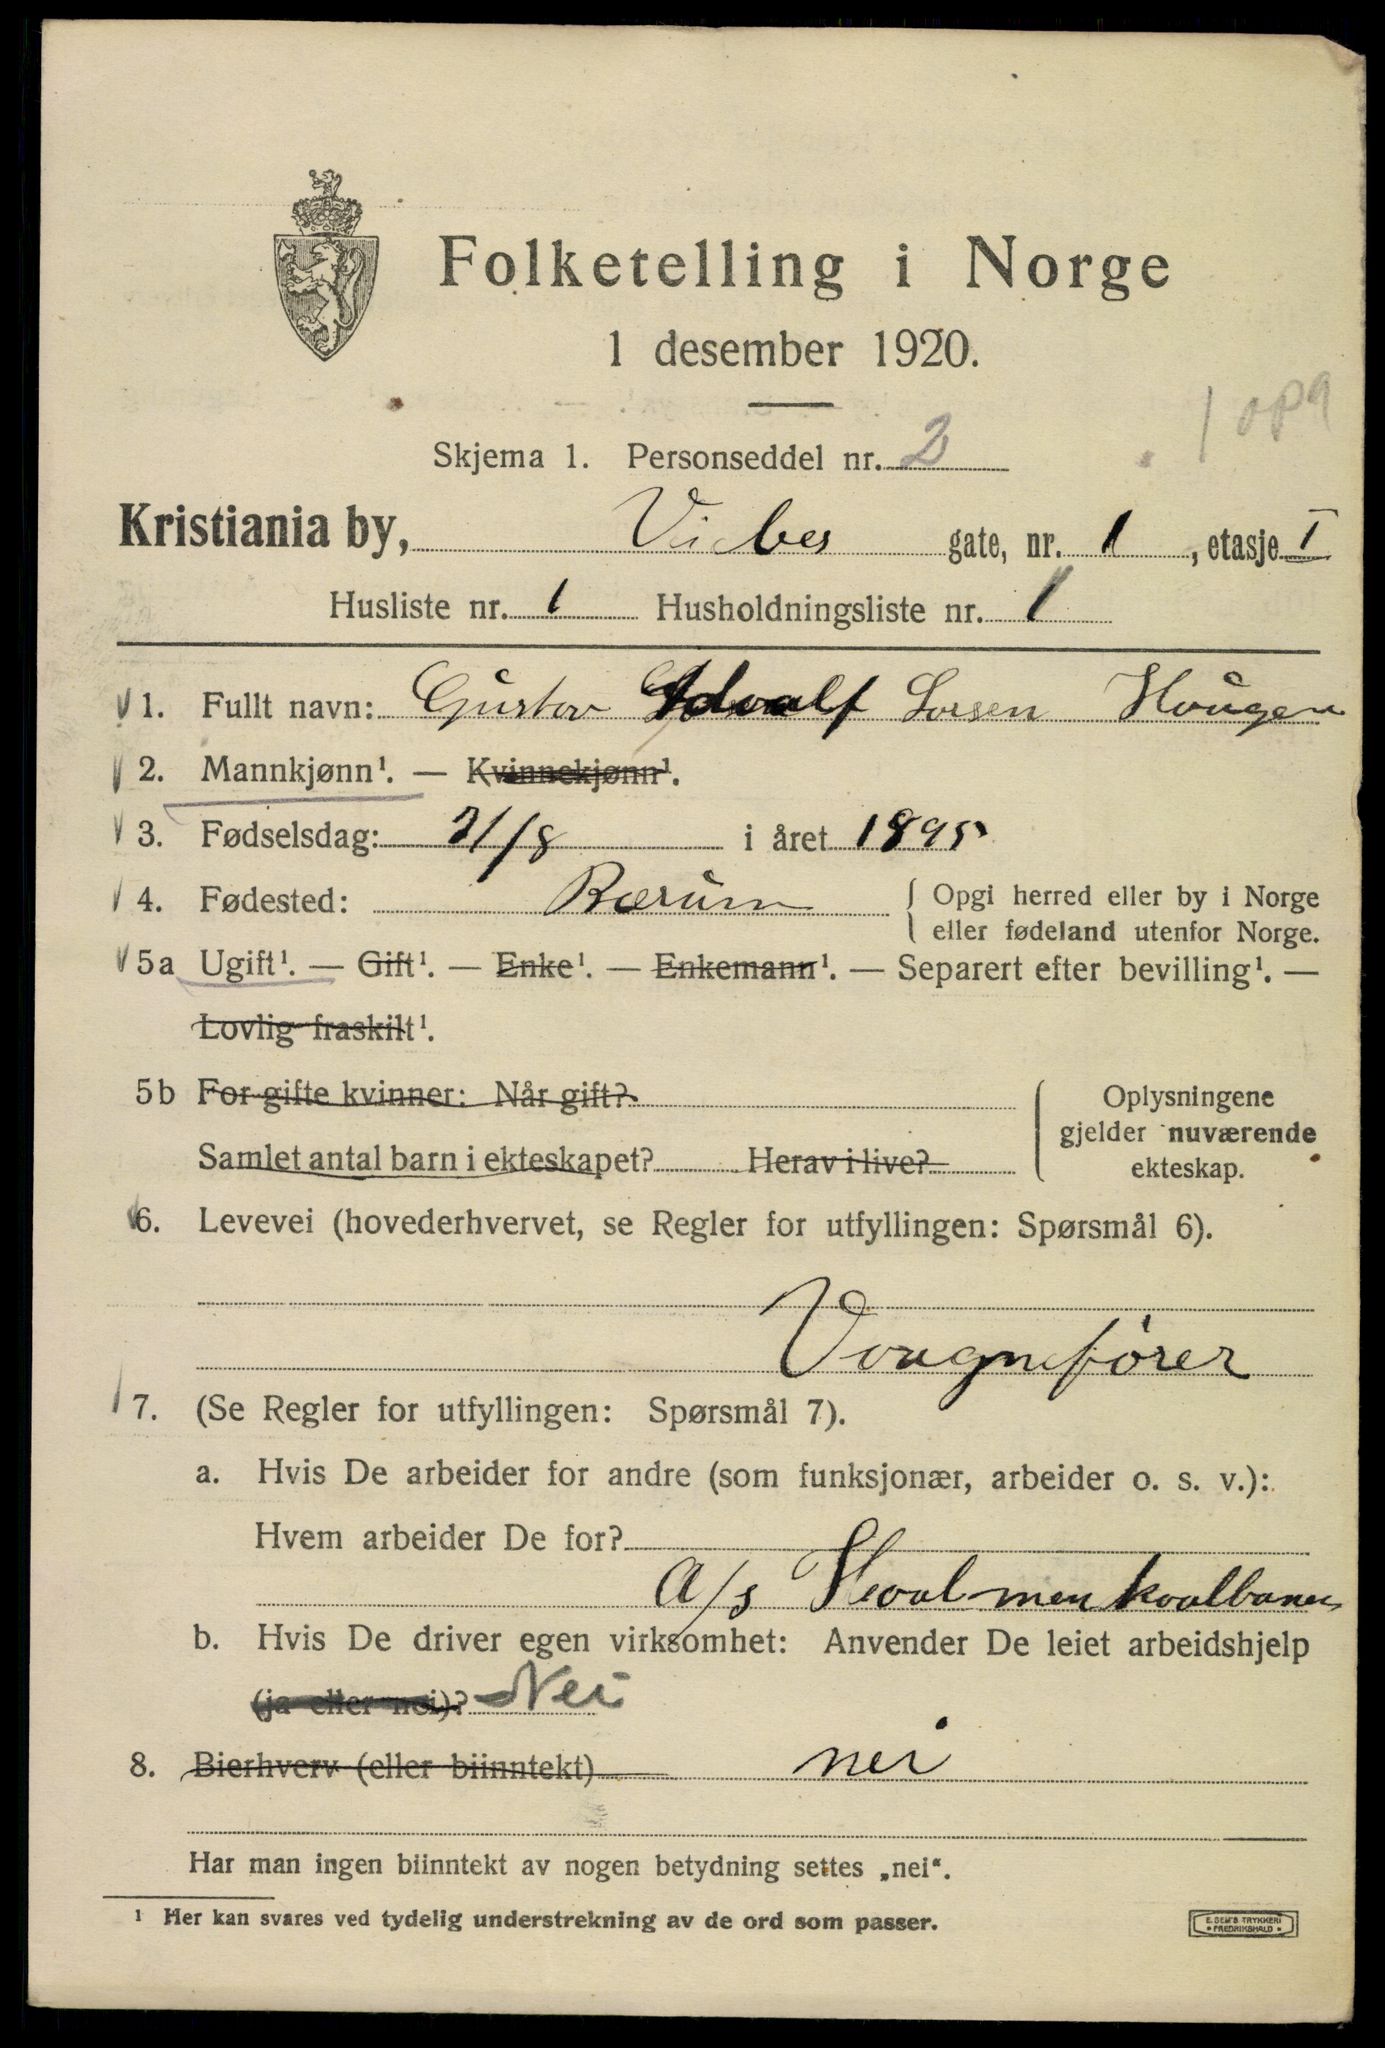 Folketelling i Norge
1 desember 1920.
1 opg
Skjema 1. Personseddel nr. 2
Kristiania by, Vibes gate, nr. 1, etasje I
Husliste nr. 1 Husholdningsliste nr. 1
1. Fullt navn: Gustav Adolf Larsen Haugen
2. Mannkjønn¹. — Kvinnekjønn¹.
3. Fødselsdag: 21/8 i året 1895
4. Fødested: Bærum { Opgi herred eller by i Norge
eller fødeland utenfor Norge.
5a Ugift¹. — Gift¹. — Enke¹. — Enkemann¹. — Separert efter bevilling¹. —
Lovlig fraskilt¹.
5b For gifte kvinner: Når gift?
Samlet antal barn i ekteskapet? Herav i live?
Oplysningene
gjelder nuværende
ekteskap.
6. Levevei (hovederhvervet, se Regler for utfyllingen: Spørsmål 6).
Vongnefører
7. (Se Regler for utfyllingen: Spørsmål 7).
a. Hvis De arbeider for andre (som funksjonær, arbeider o. s. v.):
Hvem arbeider De for?
A/s Hoalmenkoalbanen
b. Hvis De driver egen virksomhet: Anvender De leiet arbeidshjelp
(ja eller nei)? Nei
8. Bierhverv (eller biinntekt) nei
Har man ingen biinntekt av nogen betydning settes „nei“.
¹ Her kan svares ved tydelig understrekning av de ord som passer.
E. SEM'S TRYKKERI
• FREDRIKSHALD •